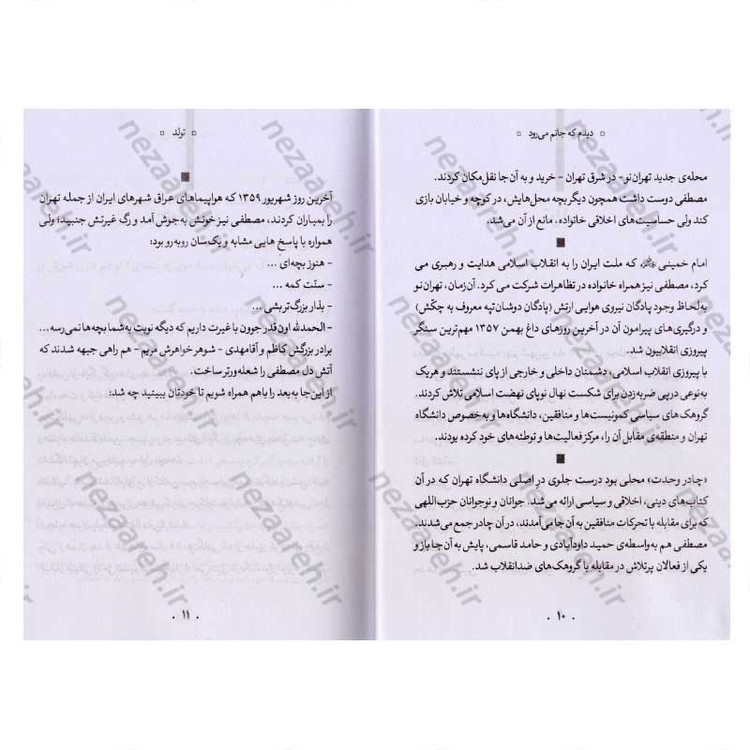 دیدم که جانم می‌رود
محله‌ی جدید تهران‌نو- در شرق تهران - خرید و به آن‌جا نقل‌مکان کردند.
مصطفی دوست داشت همچون دیگر بچه محل‌هایش، در کوچه و خیابان بازی
کند ولی حساسیت‌های اخلاقی خانواده، مانع از آن می‌شد.
امام خمینی که ملت ایران را به انقلاب اسلامی هدایت و رهبری می
کرد، مصطفی نیز همراه خانواده در تظاهرات شرکت می کرد. آن‌زمان، تهران‌نو
به‌لحاظ وجود پادگان نیروی هوایی ارتش (پادگان دوشان‌تپه معروف به چکّش)
و درگیری‌های پیرامون آن در آخرین روزهای داغ بهمن ۱۳۵۷ مهم‌ترین سنگر
پیروزی انقلابیون شد.
با پیروزی انقلاب اسلامی، دشمنان داخلی و خارجی از پای ننشستند و هریک
به‌نوعی درپی ضربه‌زدن برای شکست نهال نوپای نهضت اسلامی تلاش کردند.
گروهک‌های سیاسی کمونیست‌ها و منافقین، دانشگاه‌ها و به‌خصوص دانشگاه
تهران و منطقه‌ی مقابل آن را، مرکز فعالیت‌ها و توطئه‌های خود کرده بودند.
«چادر وحدت» محلی بود درست جلوی در اصلی دانشگاه تهران که در آن
کتاب‌های دینی، اخلاقی و سیاسی ارائه می‌شد. جوانان و نوجوانان حزب‌اللهی
که برای مقابله با تحرکات منافقین به آن جا می‌آمدند، در آن چادر جمع می‌شدند.
مصطفی هم به‌واسطه‌ی حمید داودآبادی و حامد قاسمی، پایش به آن‌جا باز و
یکی از فعالان پرتلاش در مقابله با گروهک‌های ضدانقلاب شد.
۱۰
تولّد
آخرین روز شهریور ۱۳۵۹ که هواپیماهای عراق شهرهای ایران از جمله تهران
را بمباران کردند، مصطفی نیز خونش به‌جوش آمد و رگ غیرتش جنبید؛ ولی
همواره با پاسخ هایی مشابه و یک‌سان روبه‌رو بود:
- هنوز بچه‌ای ...
- سنّت کمه ...
- بذار بزرگ‌تر بشی ...
- الحمدلله اون‌قدر جوون با غیرت داریم که دیگه نوبت به‌شما بچه‌ها نمی‌رسه ...
برادر بزرگش کاظم و آقامهدی - شوهر خواهرش مریم - هم راهی جبهه شدند که
آتش دل مصطفی را شعله‌ورتر ساخت.
از این‌جا به‌بعد را باهم همراه شویم تا خودتان ببینید چه شد:
۱۱
nezaareh.ir